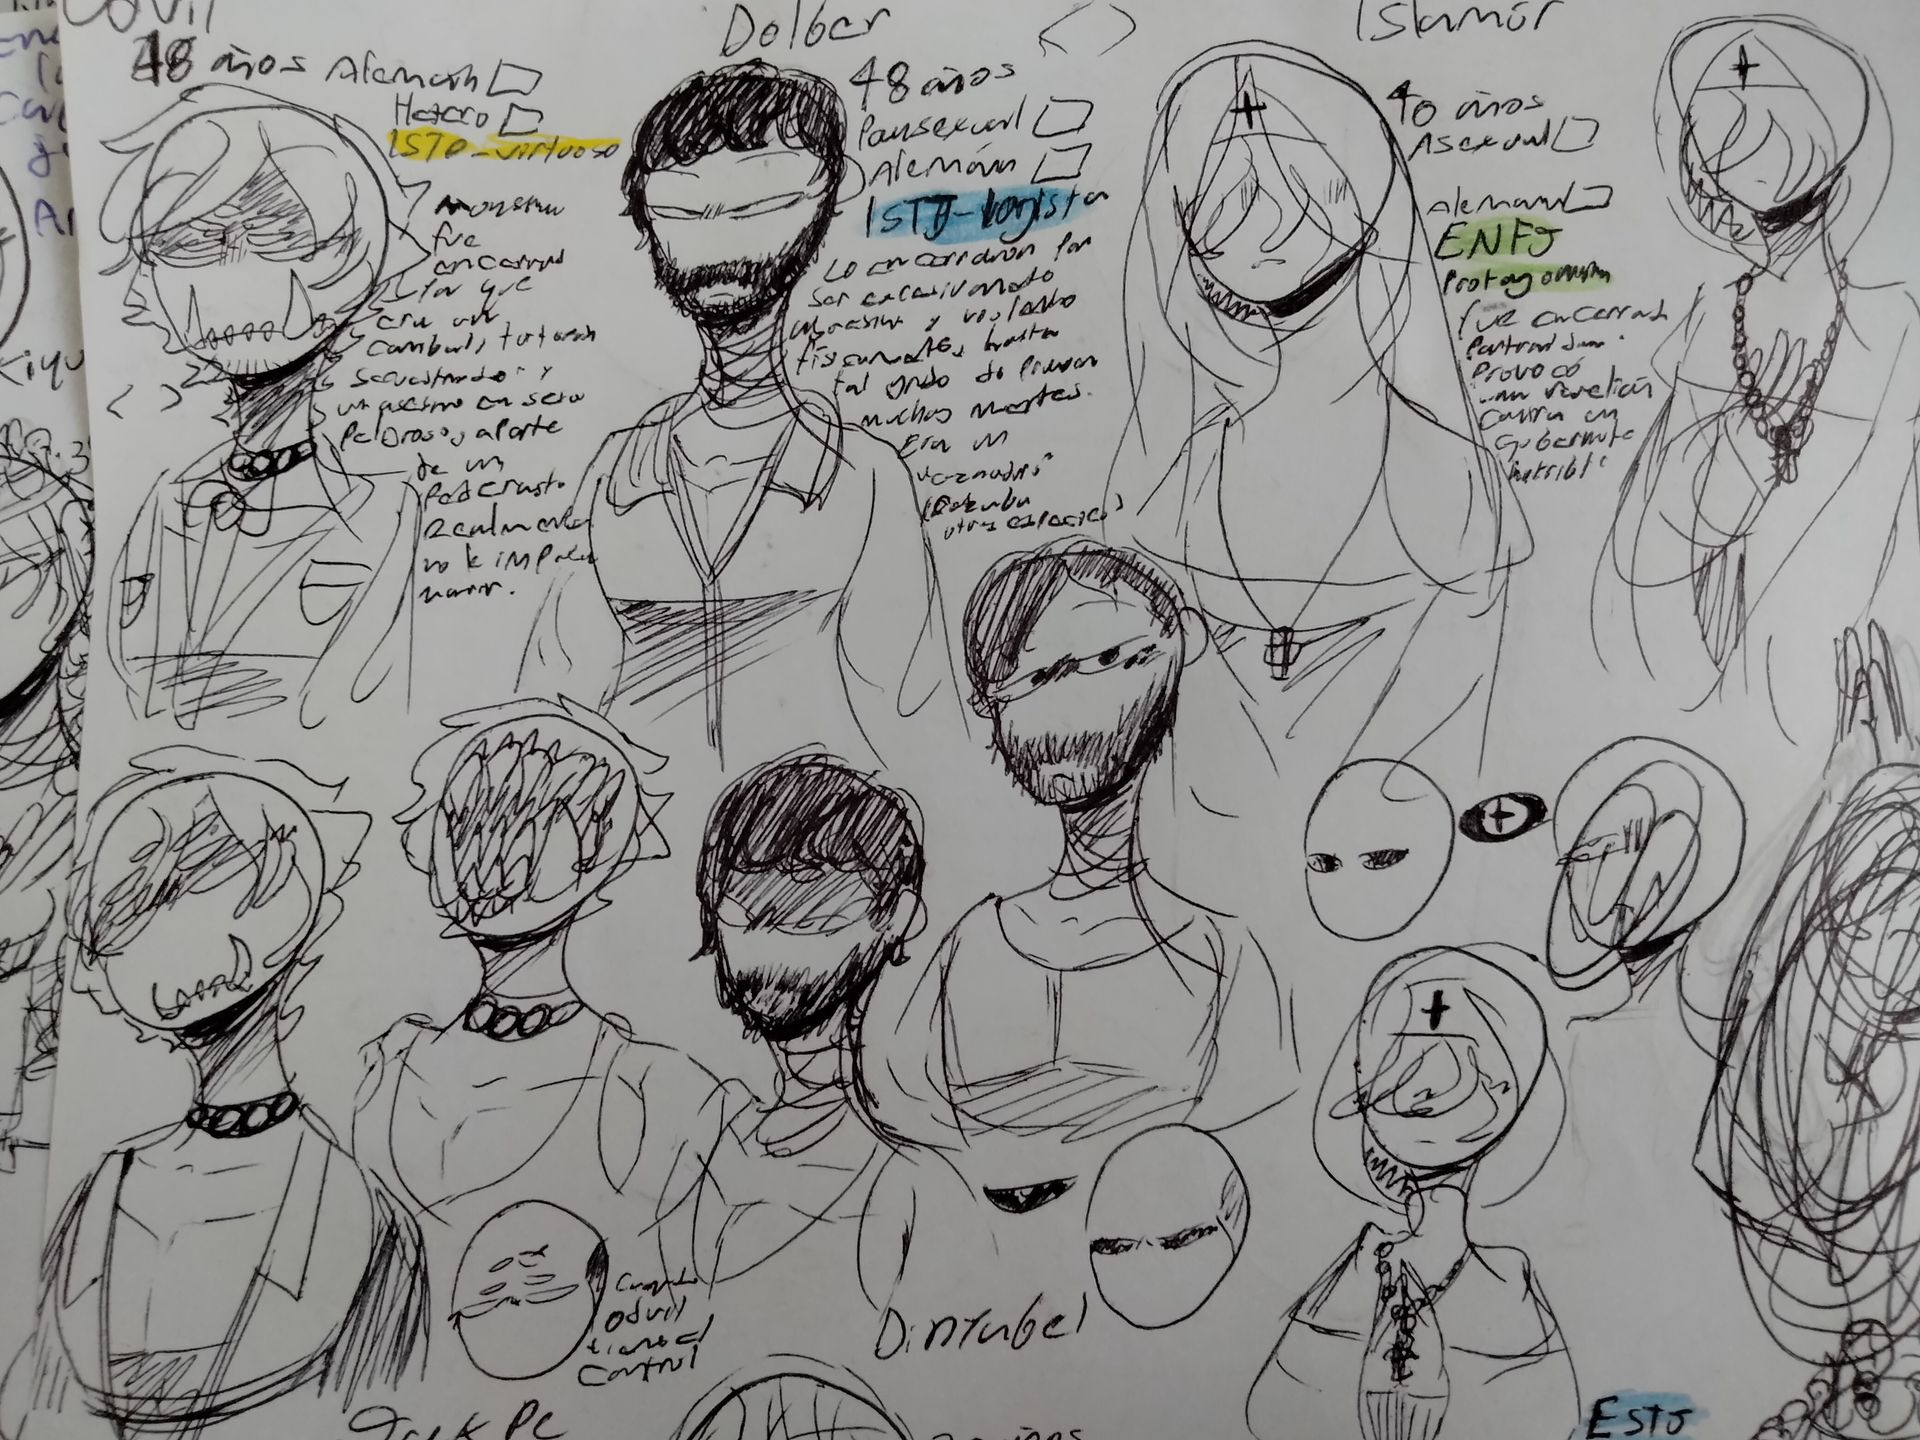 Dolber
Islamór
48 años Alemán
Hetero
ISTP-virtuoso
fue
encerrado
por que
era un
canibal, torturador
secuestrador y
un asesino en serie
peligroso, aparte
de un
Pederasta
Realmente
no le importa
morir.
48 años
Pansexual
Alemán
ISTJ-Logista
Lo encerraron por
ser excesivamente
agresivo y violento
fisicamente, hasta
tal grado de provocar
muchas muertes.
Era un
"cazador"
40 años
Asexual
Alemán
ENFJ
Protagonista
fue encerrado
Provocó
una rebelión
contra un
Gobernante
horrible
Cuando
Odvil
tiene el
control
Dinrubel
ESTJ